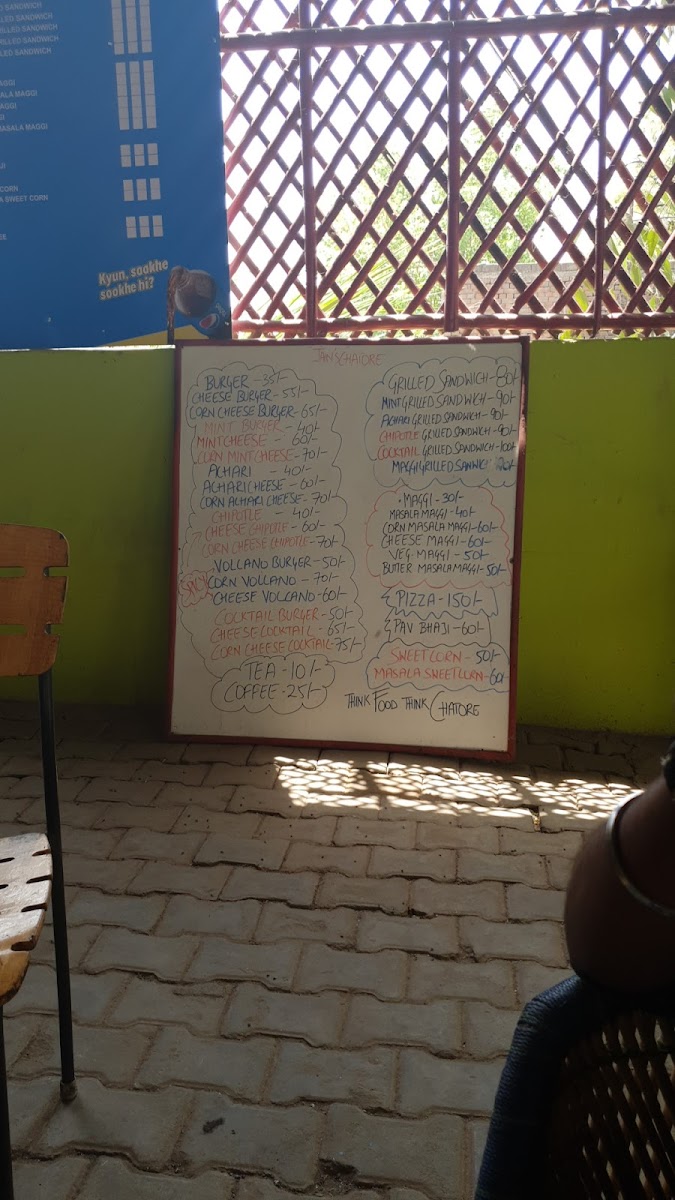 D SANDWICH
LLED SANDWICH
RILLED SANDWICH
GRILLED SANDWICH
LLED SANDWICH
AGGI
ALA MAGGI
AGGI
GI
MASALA MAGGI
JI
CORN
A SWEET CORN
EE
Kyun, sookhe
sookhe hi?
JAN'S CHATORE
BURGER - 35/-
CHEESE BURGER - 55/-
CORN CHEESE BURGER - 65/-
MINT BURGER - 40/-
MINT CHEESE - 60/-
CORN MINT CHEESE - 70/-
ACHARI - 40/-
ACHARI CHEESE - 60/-
CORN ACHARI CHEESE - 70/-
CHIPOTLE - 40/-
CHEESE CHIPOTLE - 60/-
CORN CHEESE CHIPOTLE - 70/-
VOLLANO BURGER - 50/-
SPICY
CORN VOLLANO - 70/-
CHEESE VOLCANO - 60/-
COCKTAIL BURGER - 50/-
CHEESE COCKTAIL - 65/-
CORN CHEESE COCKTAIL - 75/-
TEA - 10/-
COFFEE - 25/-
GRILLED SANDWICH - 80/-
MINT GRILLED SANDWICH - 90/-
ACHARI GRILLED SANDWICH - 90/-
CHIPOTLE GRILLED SANDWICH - 90/-
COCKTAIL GRILLED SANDWICH - 100/-
MAGGI GRILLED
MAGGI - 30/-
MASALA MAGGI - 40/-
CORN MASALA MAGGI - 60/-
CHEESE MAGGI - 60/-
VEG MAGGI - 50/-
BUTTER MASALA MAGGI - 50/-
PIZZA - 150/-
PAV BHAJI - 60/-
SWEET CORN - 50/-
MASALA SWEET CORN - 60/-
THINK FOOD THINK CHATORE